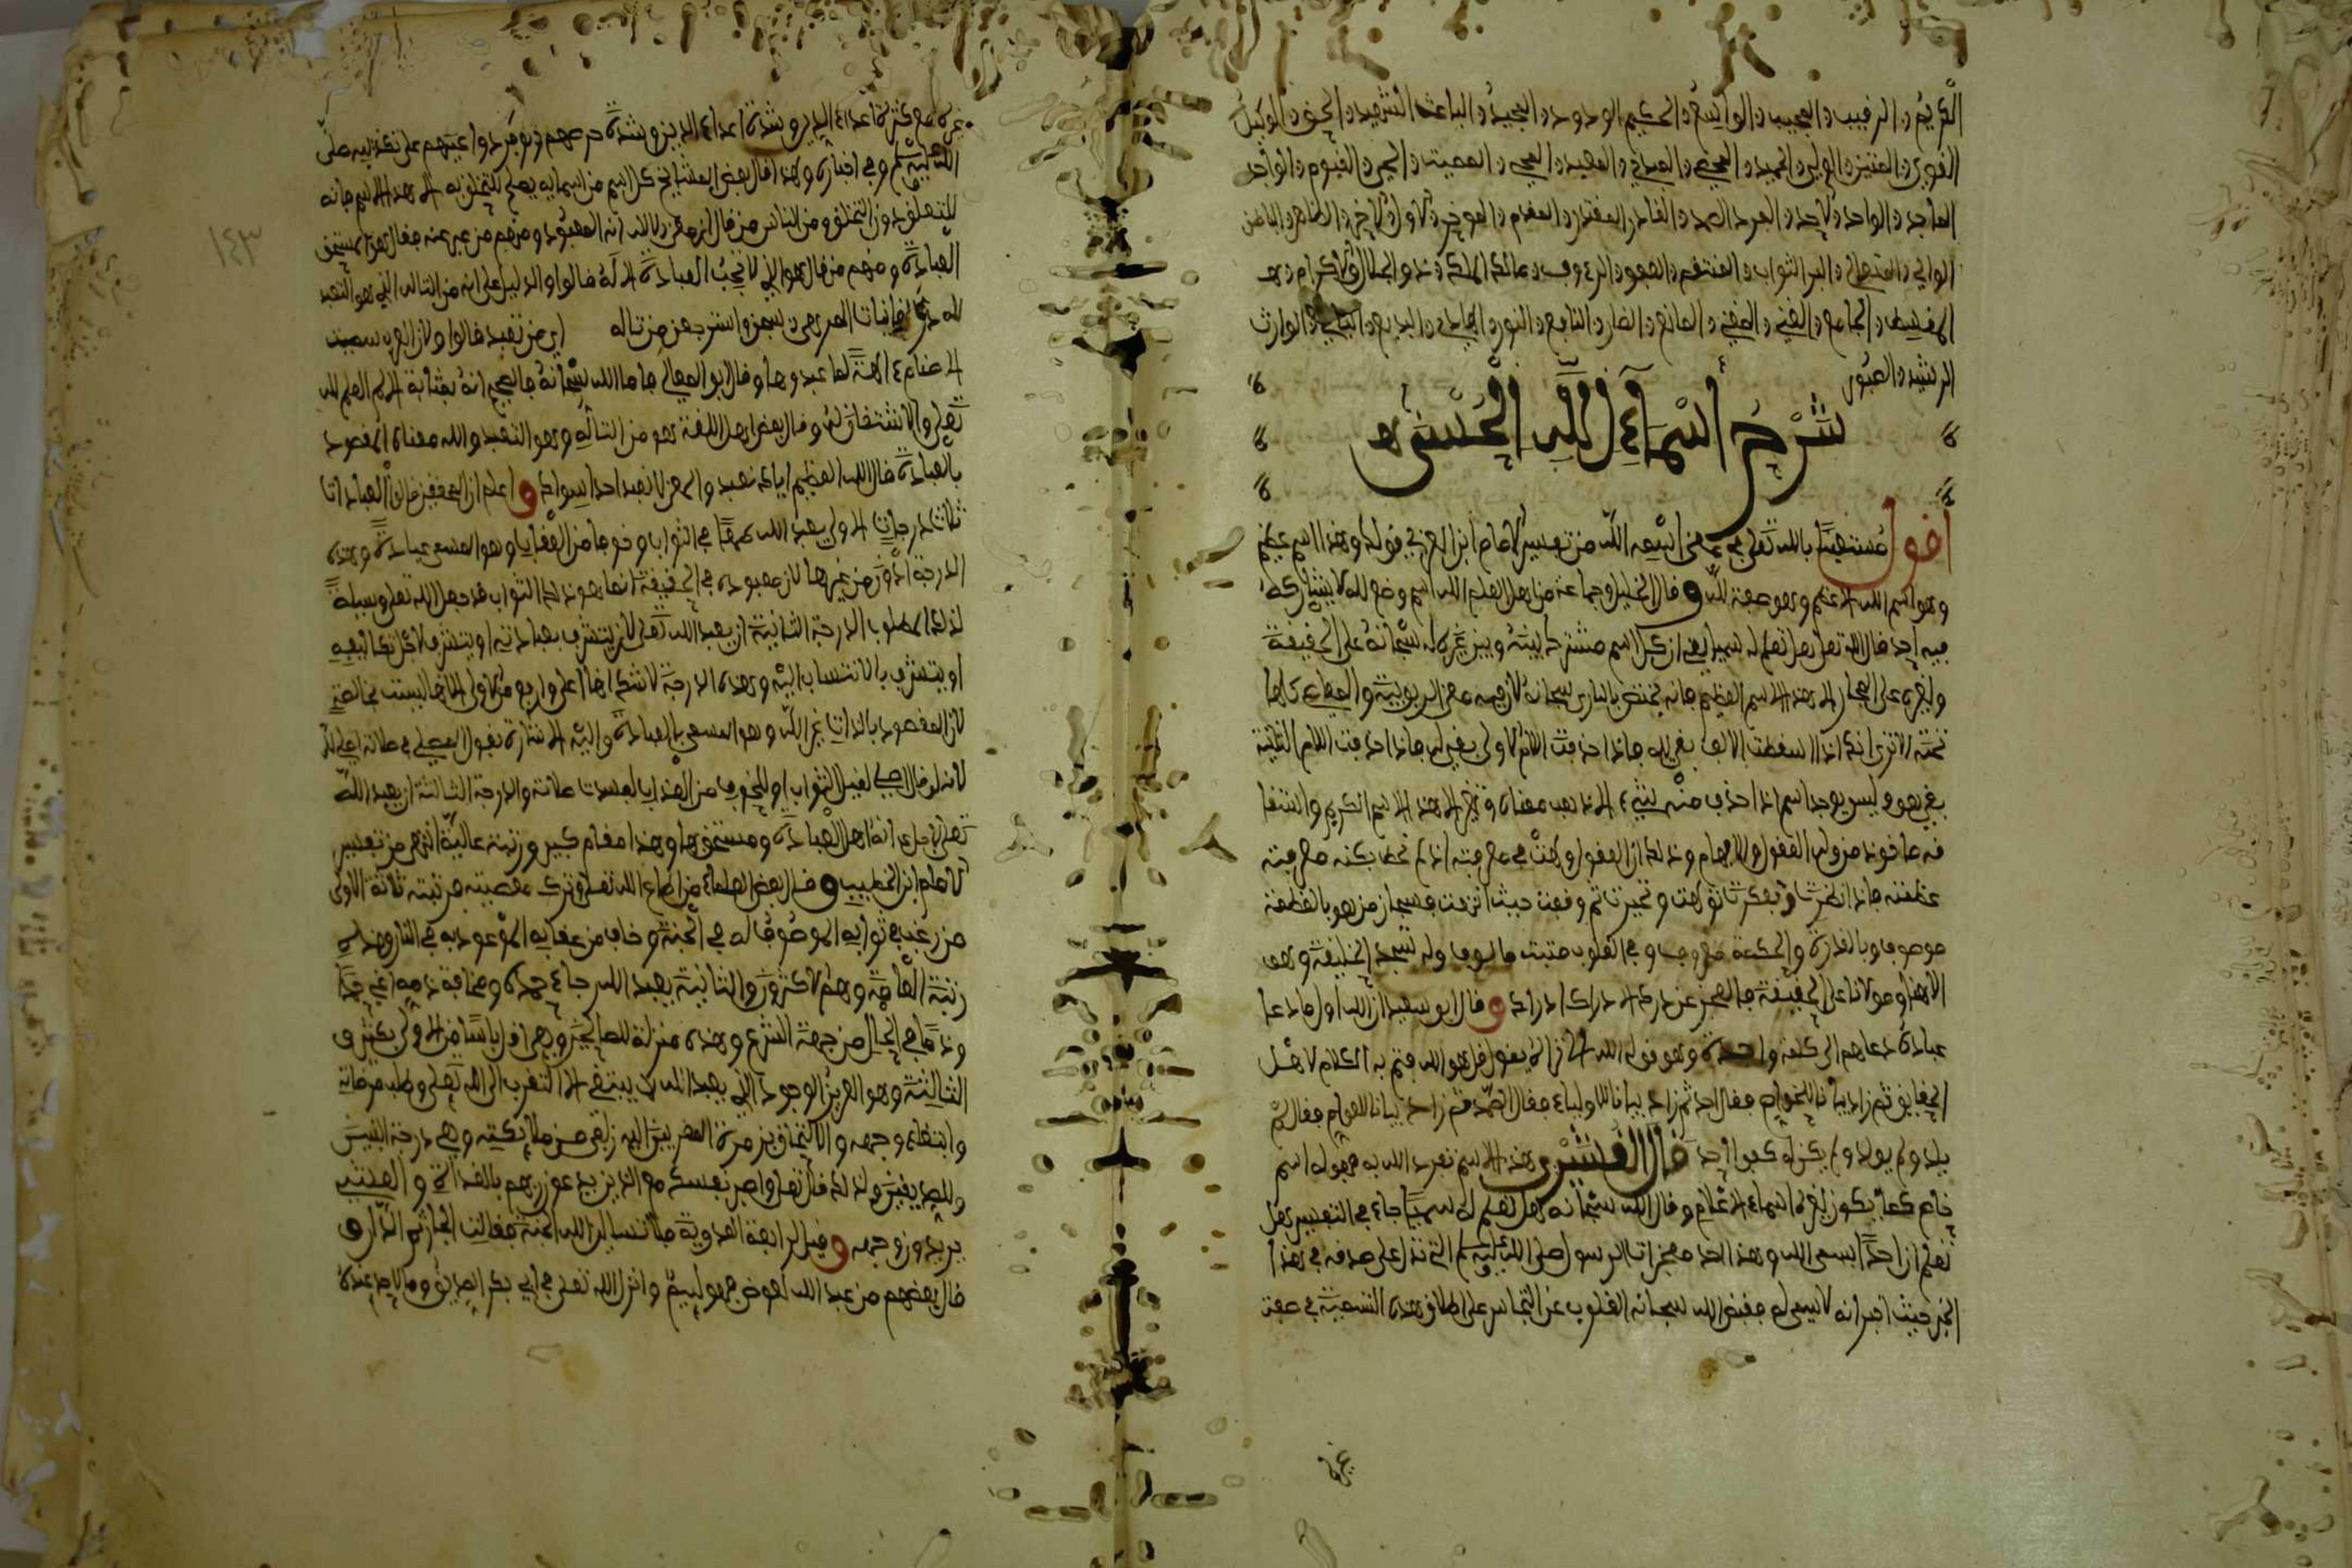 الكريم والرقيب والمجيب والواسع والحكيم الودود والمجيد والباعث الشهيد والحق والوكيل
القوي والمتين والولي والحميد والمحصي والمبدئ والمعيد والمحيي والمميت والحي والقيوم والواجد
الماجد والواحد والاحد والفرد الصمد والقادر المقتدر والمقدم والموخر والاول والاخر والظاهر والباطن
الوالي والمتعالي والبر التواب والمنتقم والعفو والرءوف ومالك الملك وذو الجلال والاكرام وهو
المقسط والجامع والغني والمغني والمانع والضار والنافع والنور والهادي والبديع والباقي والوارث
الرشيد والصبور
شرح أسماء الله الحسنى
أقول مستعينا بالله تعلى في معنى اسمه الله من تفسير الامام ابن العربي قوله وهذا اسم عظيم
وهو اسم الله الاعظم وهو صفة لله وقال الخليل وجماعة من اهل العلم الله اسم وضع لله لا يشاركه
فيه احد قال الله تعلى هل تعلم له سميا يعني ان كل اسم مشترك بينه وبين غيره له سبحانه على الحقيقة
ولغيره على المجاز الا هذا الاسم العظيم فانه يختص بالباري سبحانه لان فيه معنى الربوبية والمعاني كلها
تحته الا ترى انك اذا اسقطت الالف بقي لله فاذا حذفت اللام الاولى بقي له فاذا حذفت اللام الثانية
بقي هو وليس يوجد اسم اذا حذف منه شيء الا ذهب معناه وتغير الا هذا الاسم الكريم واشتقا
قه ماخوذ من وله العقول والافهام وذلك ان العقول ولهت في معرفته اذ لم تحط بكنه معرفة
عظمته فاذا نظرت وتفكرت تولهت وتحيرت ثم وقفت حيث انتهت فسبحان من هو بالعظمة
موصوف وبالقدرة والحكمة معروف وفي القلوب مثبت مالوف وله تسجد الخليقة وهو
الاهنا ومولانا على الحقيقة فالعجز عن درك الادراك ادراك وقال ابو سعيد ان الله اول ما دعا
عباده دعاهم الى كلمة واحدة وهو قوله الله الا تراه يقول قل هو الله فتم به الكلام لاهل
الحقايق ثم زاد بيانا للخواص فقال احد ثم زاد بيانا للاولياء فقال الصمد ثم زاد بيانا للعوام فقال لم
يلد ولم يولد ولم يكن له كفوا احد قال القشيري هذا الاسم تفرد الله به فهو له اسم
خاص كما يكون لغيره اسماء الاعلام وقال الله سبحانه هل تعلم له سميا جاء في التفسير هل
تعلم ان احدا يسمى الله وهذا احد معجزات الرسول صلى الله عليه وسلم التي تدل على صدقه في هذا
الخبر حيث اخبر انه لا يسمى له فقبض الله سبحانه القلوب عن التجاسر على اطلاق هذه التسمية في صفة
غيره
غيره مع كثرة اعداء الدين وشدة اعداء الدين وشدة حرصهم وتوفر دواعيهم على تكذيبه صلى
الله عليه وسلم وفي اخباره ولهذا قال بعض المشايخ كل اسم من اسمايه يصلح للتخلق به الا هذا الاسم فانه
للتعلق دون التخلق ومن الناس من قال ان معنى الله انه المعبود ومنهم من عبر عنه فقال هو المستحق
العبادة ومنهم من قال هو الذي لا تجب العبادة الا له قالوا والدليل على انه من التاله الذي هو التعبد
لله در الغانيات المده سبحن واسترجعن من تاله اي من تعبد قالوا ولان العرب سميت
الاصنام ءالهة لما عبدوها وقال ابو المعالي فاما الله سبحانه فالصحيح انه بمثابة الاسم العلم لله
تعلى ولا اشتقاق له وقال بعض اهل اللغة هو من التأله وهو التعبد والله معناه المقصود
بالعبادة قال الله العظيم اياك نعبد والمعنى لا نعبد احدا سواك واعلم ان المحققين قالوا العبادات
ثلاث درجات الاولى يعبد الله طمعا في الثواب وخوفا من العقاب وهو المسمى عبادة وهذه
الدرجة ادون من غيرها لان معبوده في الحقيقة انما هو ذلك الثواب فقد جعل الله تعلى وسيلة
لذلك المطلوب الدرجة الثانية ان يعبد الله تعلى لان يتشرف بعبادته او يتشرف لاجل تكاليفه
او يتشرف بالانتساب اليه وهذه الدرجة لا شك انها اعلى وارفع من الاولى الا انها ليست بخالصة
لان المقصود بالذات غير الله وهو المسمى بالعبادة واليه الاشارة بقول المصلي في صلاته اصلي لله
لانه لو قال اصلي لنيل الثواب او للخوف من العذاب لفسدت صلاته والدرجة الثالثة ان يعبد الله
تعلى لاجل انه اهل للعبادة ومستحق لها وهذا مقام كبير ورتبة عالية انتهى من تفسير
الامام ابن الخطيب وقال بعض العلماء من اطاع الله تعلى وترك معصيته مرتبته ثلاثة الاولى
من رغب في ثوابه الموصوف له في الجنة وخاف من عقابه الموعود به في النار وهذه
رتبة العامة وهم الاكثرون والثانية يعبد الله رجاء حمده ومخافة ذمه اعني حمدا
وذما في الحال من جهة الشرع وهذه منزلة للصالحين وهي اقل ناسا من الاولى بكثير
الثالثة وهو العزيز الوجود الذي يعبد الله لا يبتغي الا التقرب الى الله تعلى وطلب مرضاته
وابتغاء وجهه والالتحاق بزمرة المقربين اليه زلفى من ملائكته وهي درجة النبيين
والصديقين ولذلك قال تعلى واصبر نفسك مع الذين يدعون ربهم بالغداة والعشي
يريدون وجهه وقيل لرابعة العدوية ما تسالين الله الجنة فقالت الجار ثم الدار
قال بعضهم من عبد الله لعوض فهو لييم وانزل الله تعلى في ابي بكر الصديق وما لاحد عنده
١٤٣